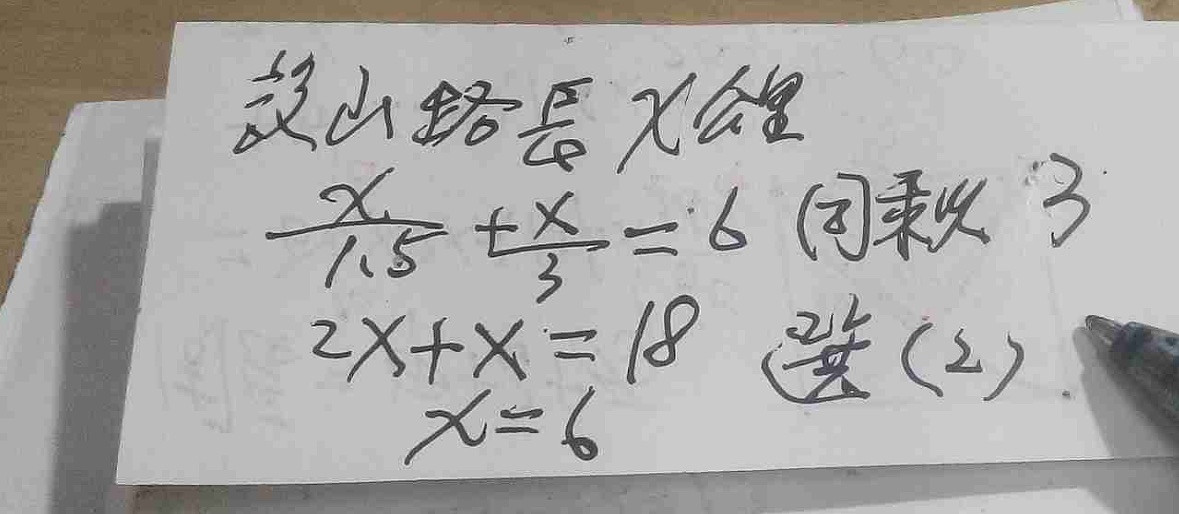 設山路長 x 公里
x/1.5 + x/3 = 6 同乘以 3
2x + x = 18 選 (2)
x = 6